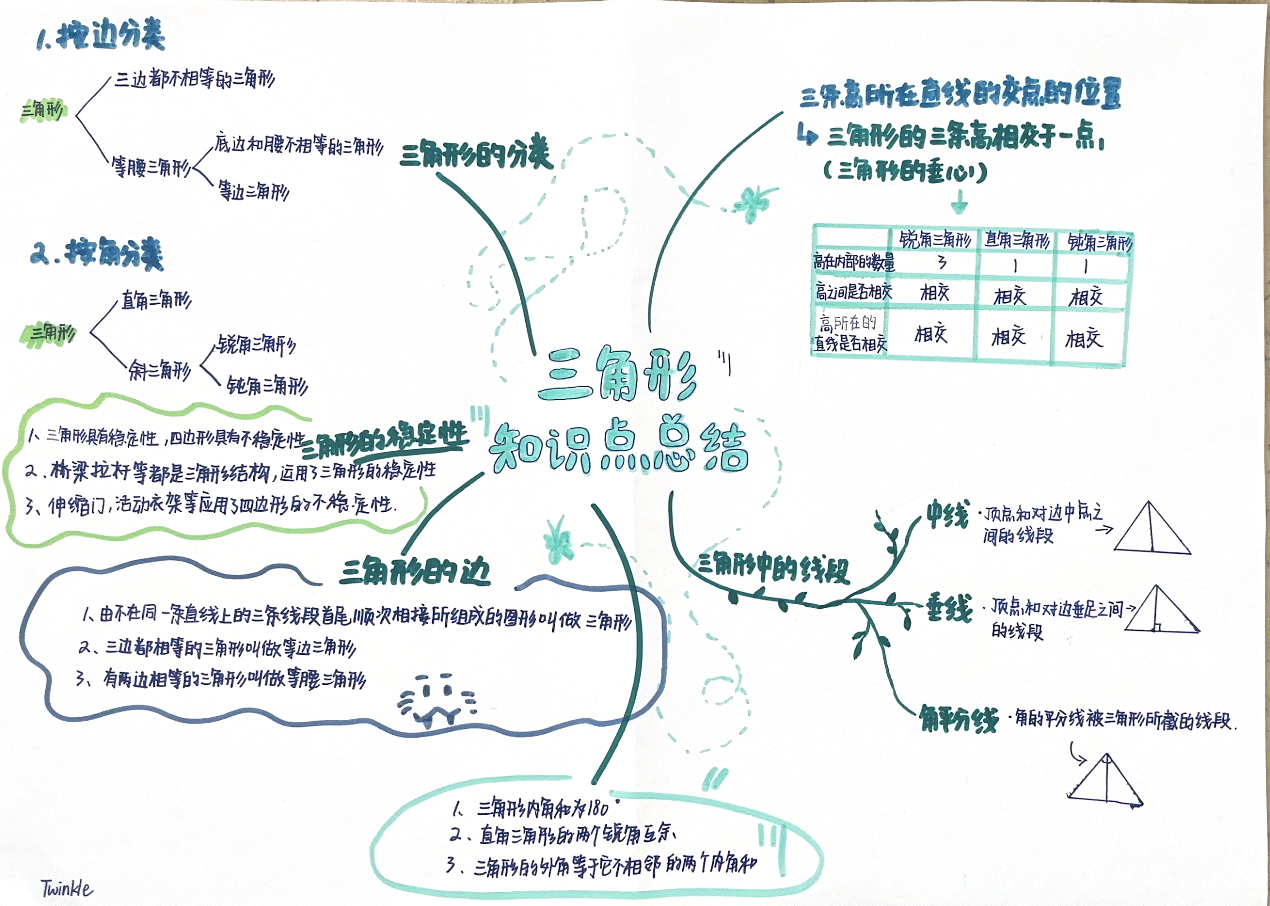 三角形
知识点总结
三角形的分类
1.按边分类
三角形
三边都不相等的三角形
等腰三角形
底边和腰不相等的三角形
等边三角形
2.按角分类
三角形
直角三角形
斜三角形
锐角三角形
钝角三角形
三角形的稳定性
1、三角形具有稳定性,四边形具有不稳定性
2、桥梁拉杆等都是三角形结构,运用了三角形的稳定性
3、伸缩门,活动衣架等应用了四边形的不稳定性.
三角形的边
1、由不在同一条直线上的三条线段首尾顺次相接所组成的图形叫做三角形
2、三边都相等的三角形叫做等边三角形
3、有两边相等的三角形叫做等腰三角形
1、三角形内角和为180°
2、直角三角形的两个锐角互余、
3、三角形的外角等于它不相邻的两个内角和
三条高所在直线的交点的位置
三角形的三条高相交于一点,
(三角形的垂心)
锐角三角形 直角三角形 钝角三角形
高在内部的数量 3 1 1
高之间是否相交 相交 相交 相交
高所在的
直线是否相交 相交 相交 相交
三角形中的线段
中线 ·顶点和对边中点之
间的线段
垂线 ·顶点和对边垂足之间
的线段
角平分线 ·角的平分线被三角形所截的线段.
Twinkle